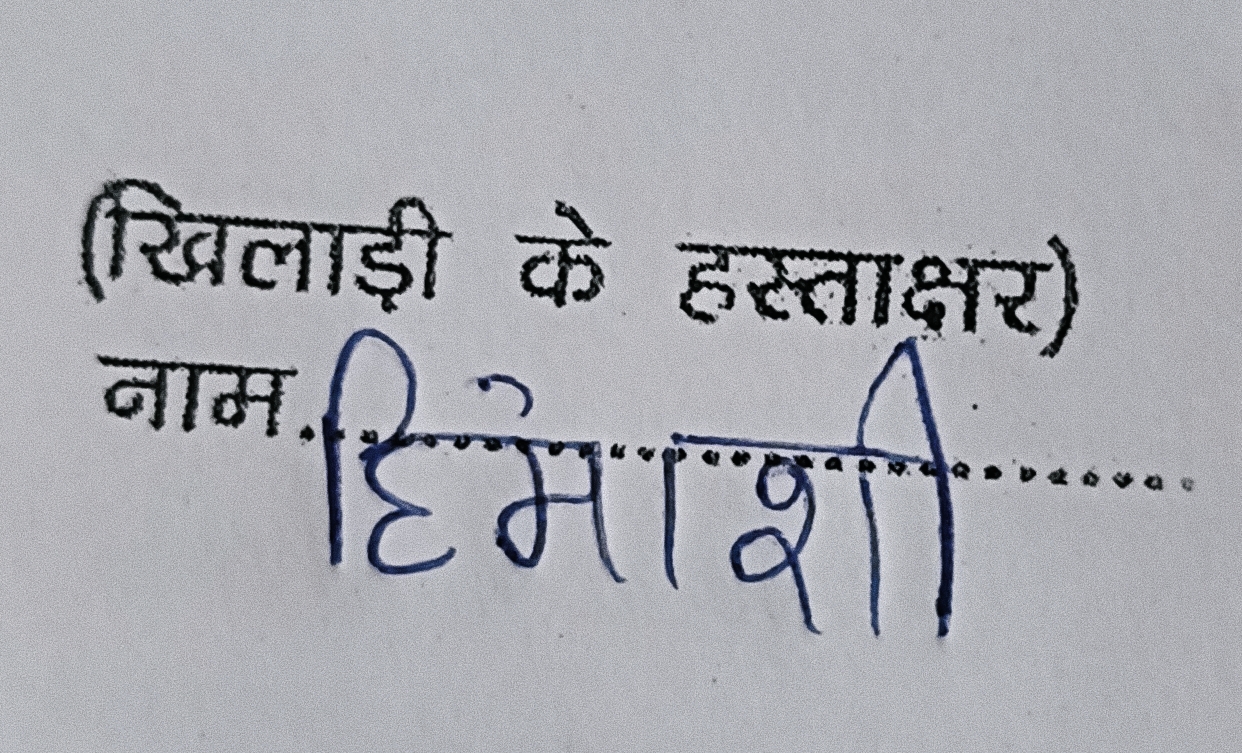 (खिलाड़ी के हस्ताक्षर)
नाम. हिमांशी